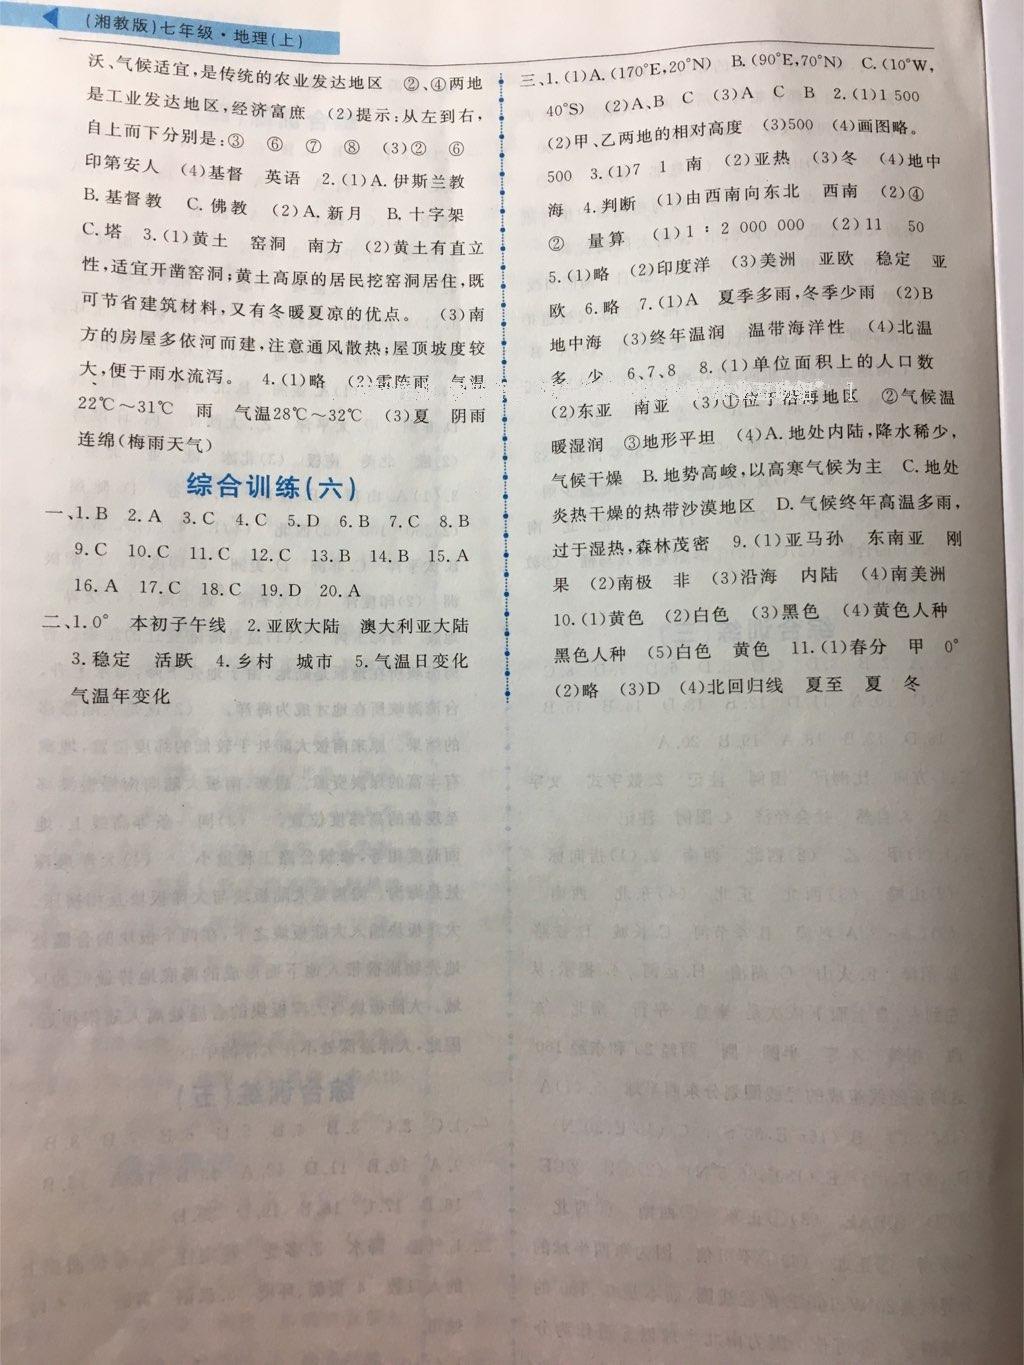 (湘教版)七年级·地理(上)
沃、气候适宜,是传统的农业发达地区 ②、④两地
是工业发达地区,经济富庶 (2)提示:从左到右,
自上而下分别是:③ ⑥ ⑦ ⑧ (3)② ⑥
印第安人 (4)基督 英语 2.(1)A.伊斯兰教
B.基督教 C.佛教 (2)A.新月 B.十字架
C.塔 3.(1)黄土 窑洞 南方 (2)黄土有直立
性,适宜开凿窑洞;黄土高原的居民挖窑洞居住,既
可节省建筑材料,又有冬暖夏凉的优点。 (3)南
方的房屋多依河而建,注意通风散热;屋顶坡度较
大,便于雨水流泻。 4.(1)略 (2)雷阵雨 气温
22℃~31℃ 雨 气温28℃~32℃ (3)夏 阴雨
连绵(梅雨天气)
综合训练(六)
一、1.B 2.A 3.C 4.C 5.D 6.B 7.C 8.B
9.C 10.C 11.C 12.C 13.B 14.B 15.A
16.A 17.C 18.C 19.D 20.A
二、1.0° 本初子午线 2.亚欧大陆 澳大利亚大陆
3.稳定 活跃 4.乡村 城市 5.气温日变化
气温年变化
三、1.(1)A.(170°E,20°N) B.(90°E,70°N) C.(10°W,
40°S) (2)A、B C (3)A C B 2.(1)1 500
(2)甲、乙两地的相对高度 (3)500 (4)画图略。
500 3.(1)7 1 南 (2)亚热 (3)冬 (4)地中
海 4.判断 (1)由西南向东北 西南 (2)④
② 量算 (1)1:2 000 000 (2)11 50
5.(1)略 (2)印度洋 (3)美洲 亚欧 稳定 亚
欧 6.略 7.(1)A 夏季多雨,冬季少雨 (2)B
地中海 (3)终年温润 温带海洋性 (4)北温
多 少 6、7、8 8.(1)单位面积上的人口数
(2)东亚 南亚 (3)①位于沿海地区 ②气候温
暖湿润 ③地形平坦 (4)A.地处内陆,降水稀少,
气候干燥 B.地势高峻,以高寒气候为主 C.地处
炎热干燥的热带沙漠地区 D.气候终年高温多雨,
过于湿热,森林茂密 9.(1)亚马孙 东南亚 刚
果 (2)南极 非 (3)沿海 内陆 (4)南美洲
10.(1)黄色 (2)白色 (3)黑色 (4)黄色人种
黑色人种 (5)白色 黄色 11.(1)春分 甲 0°
(2)略 (3)D (4)北回归线 夏至 夏 冬